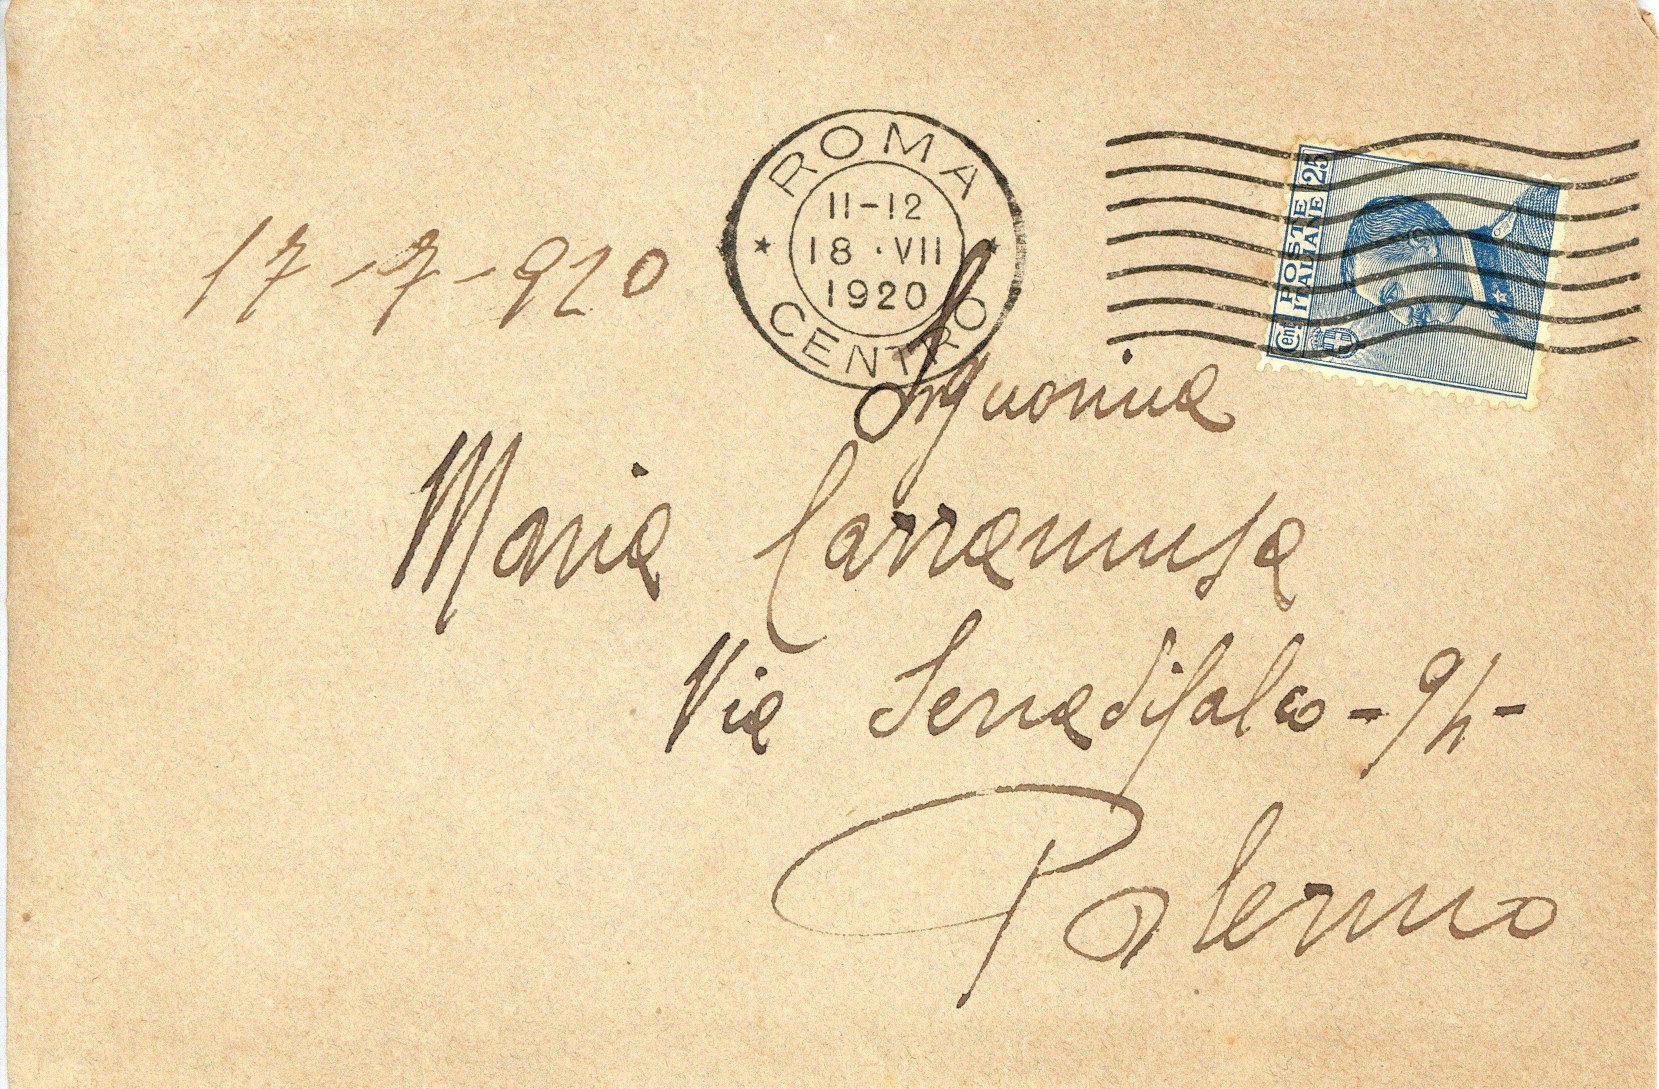 ROMA
11-12
18·VII
1920
CENTRO
POSTE ITALIANE
Cent. 25
17-7-920
Signorina
Maria Carramusa
Via Serradifalco -94-
Palermo